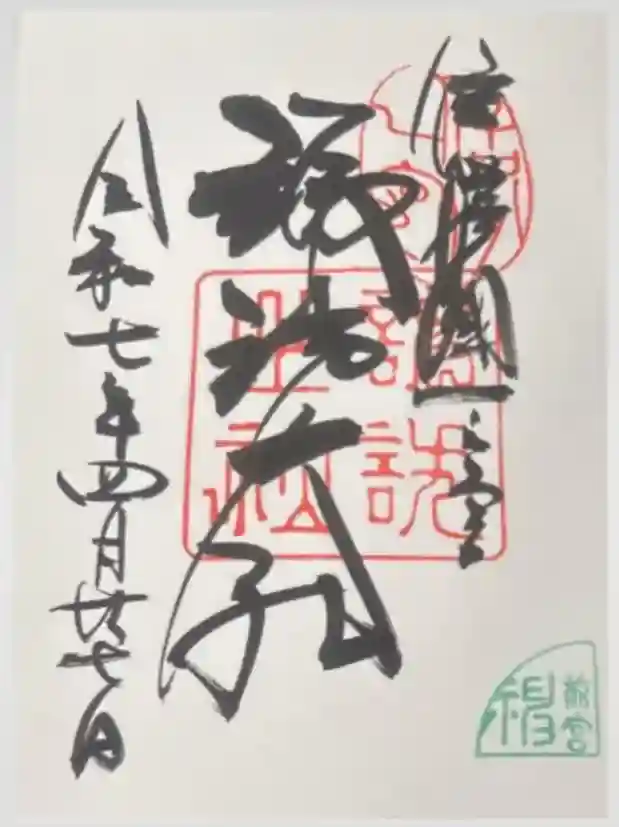 信濃國一之宮
諏訪大社
令和七年四月廿七日
前宮